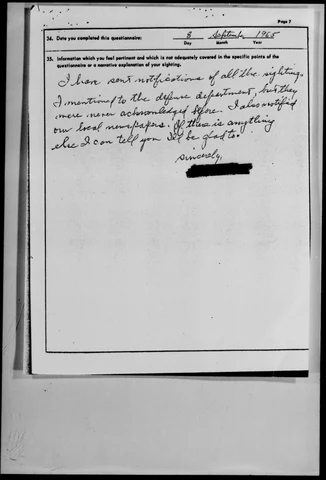 Page 7
34. Date you completed this questionnaire: 8 September 1965
Day Month Year
35. Information which you feel pertinent and which is not adequately covered in the specific points of the
questionnaire or a narrative explanation of your sighting.
I have sent notifications of all the sighting.
I mentioned to the defense department, but they
were never acknowledged before. I also notified
our local newspapers. If there is anything
else I can tell you I'd be glad to.
Sincerely,